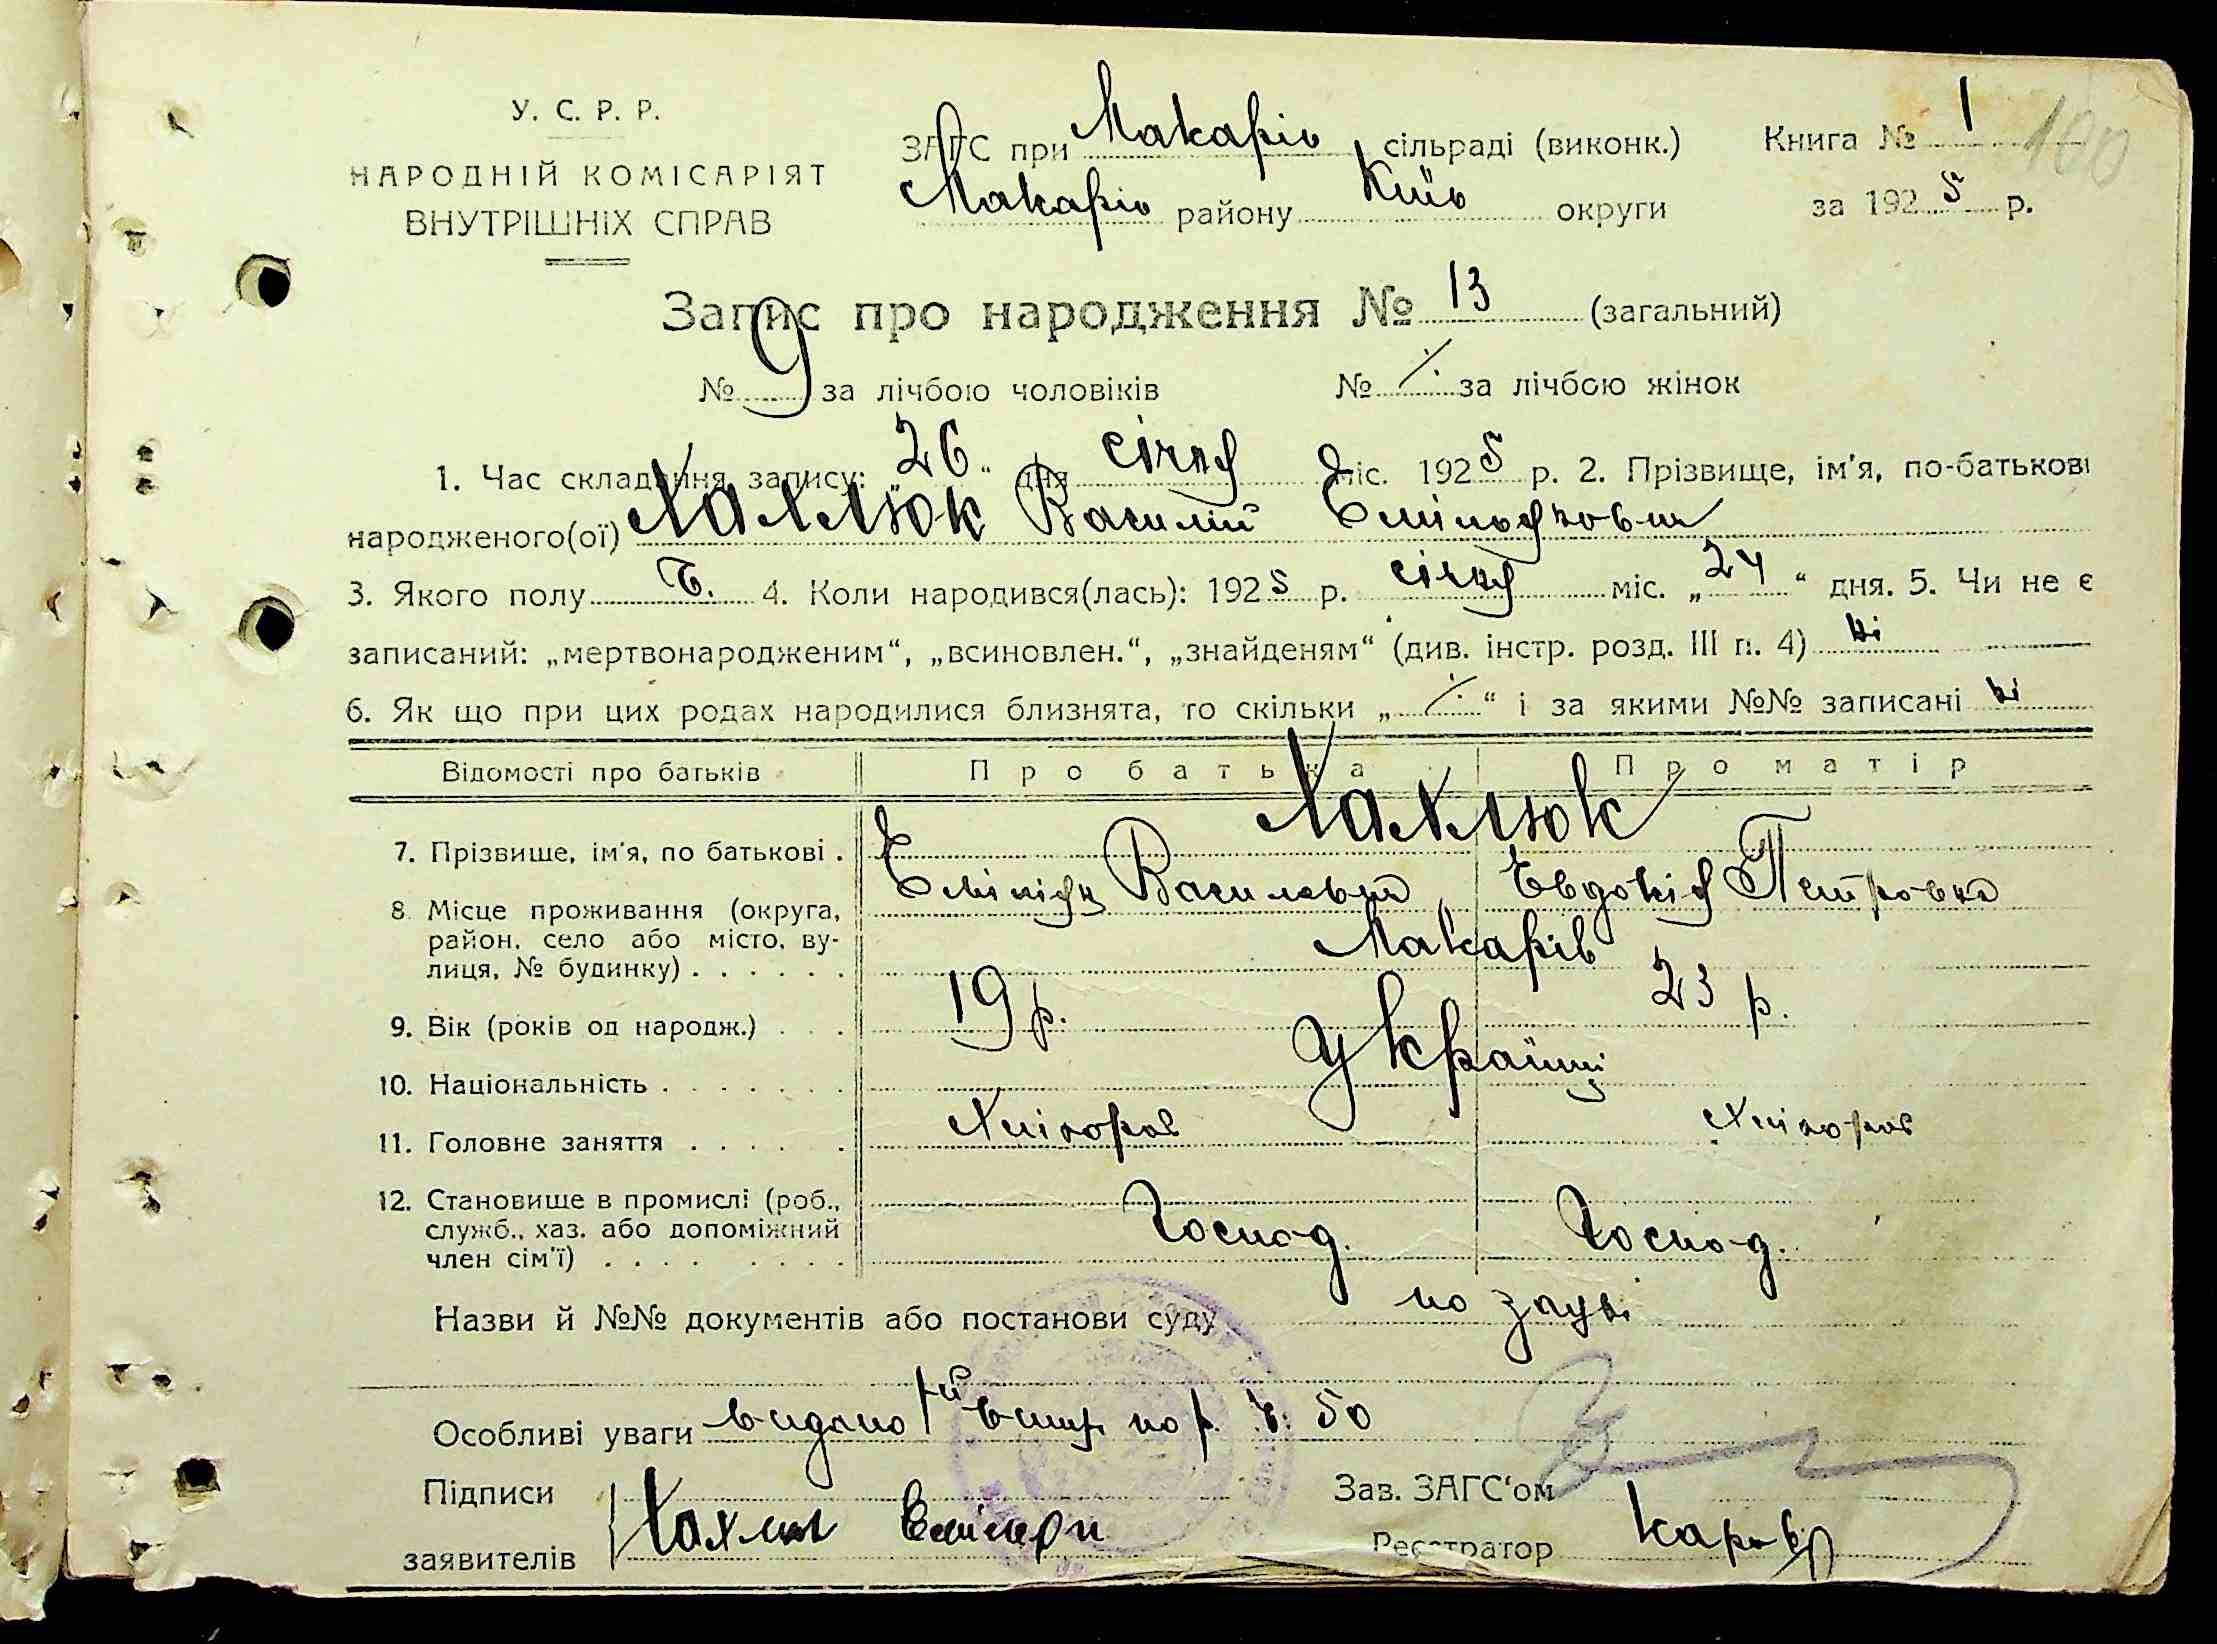 У. С. Р. Р.
НАРОДНІЙ КОМІСАРІЯТ
ВНУТРІШНІХ СПРАВ
ЗАГС при Макарів сільраді (виконк.)
Макарів району Київ округи
Книга № 1 100
за 1925 р.
Запис про народження № 13 (загальний)
№ 9 за лічбою чоловіків № ⁒ за лічбою жінок
1. Час складення запису: „26“ дня січня міс. 1925 р. 2. Прізвище, ім'я, по-батькові
народженого(ої) Хахлюк Василій
3. Якого полу Ч. 4. Коли народився(лась): 1925 р. січня міс. „24“ дня. 5. Чи не є
записаний: „мертвонародженим“, „всиновлен.“, „знайденям“ (див. інстр. розд. III п. 4) ні
6. Як що при цих родах народилися близнята, то скільки „⁒“ і за якими №№ записані ні
Відомості про батьків Про батька Про матір
7. Прізвище, ім'я, по батькові . Хахлюк
Василович Евдокія Петровна
8. Місце проживання (округа,
район, село або місто, ву-
лиця, № будинку) . . . . . . Макарів
9. Вік (років од народж.) . . . 19 р. 23 р.
10. Національність . . . . . . . Українці
11. Головне заняття . . . . . . Хлібороб Хлібороб
12. Становище в промислі (роб.,
служб., хаз. або допоміжний
член сім'ї) . . . . . . . . Господ. Господ.
Назви й №№ документів або постанови суду по заяві
Особливі уваги видано по р. Ч. 50
Підписи
заявителів Хахлюк
Зав. ЗАГС'ом
Реєстратор